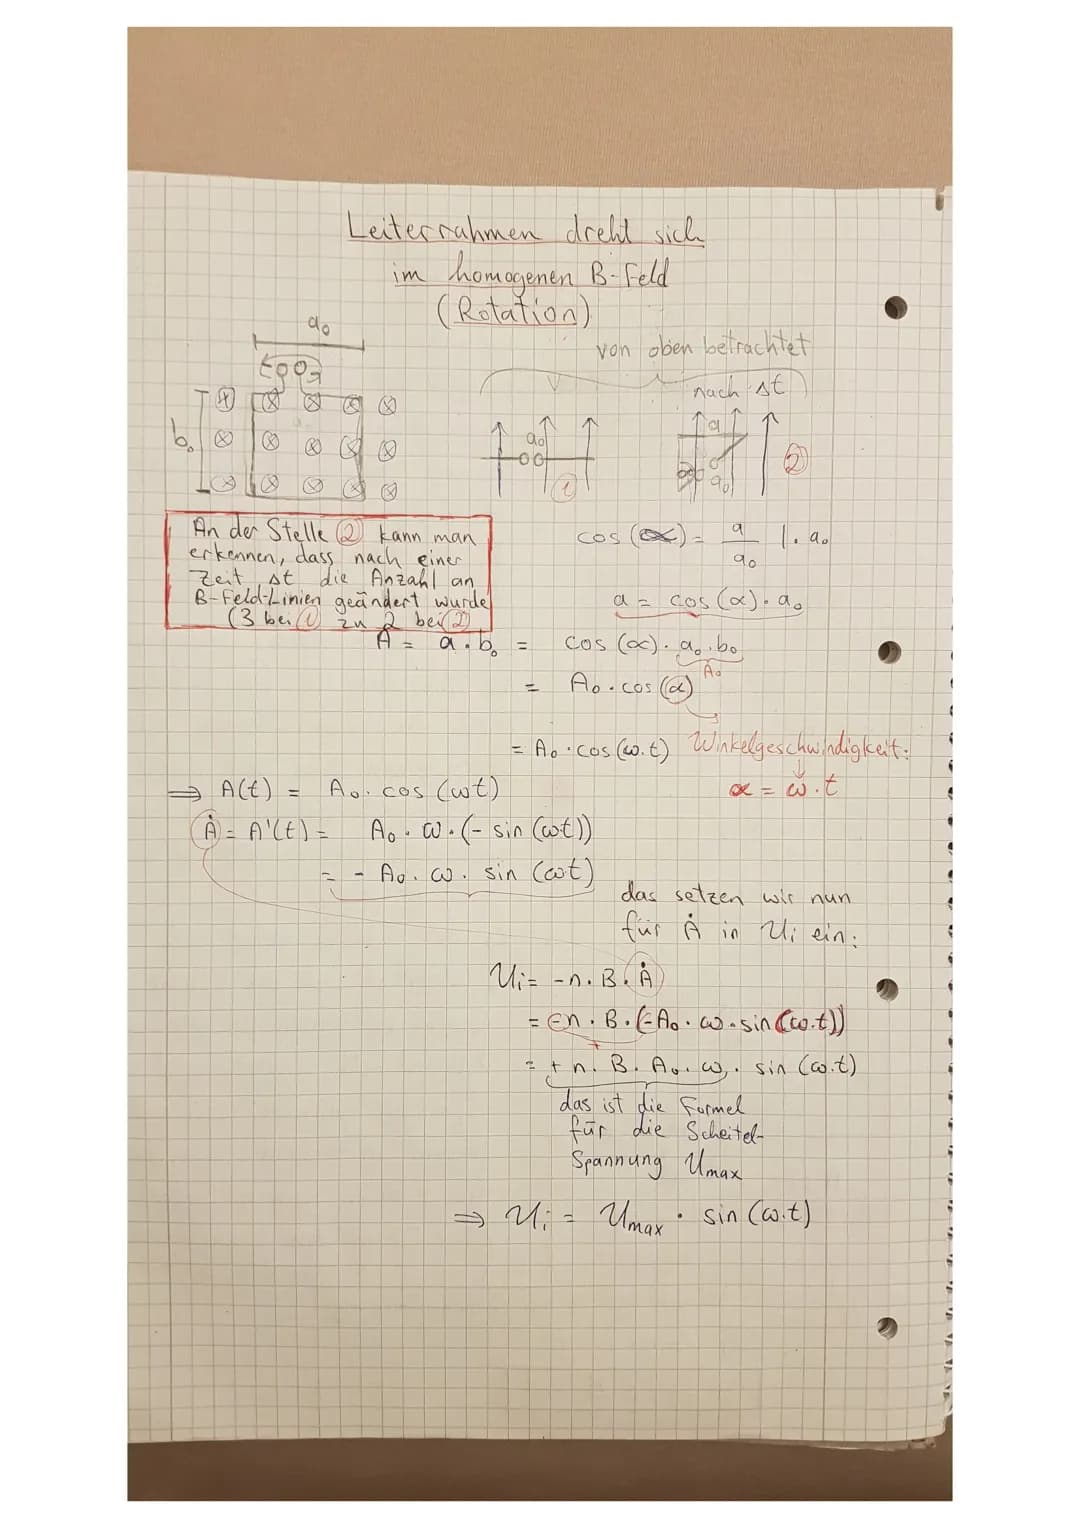 Leiterrahmen dreht sich
im homogenen B-Feld
(Rotation)
a₀
von oben betrachtet
nach Δt
b₀
a₀
a
a₀
①
②
An der Stelle ② kann man
erkennen, dass nach einer
Zeit Δt die Anzahl an
B-Feld-Linien geändert wurde
(3 bei ① zu 2 bei ②)
cos (α) = a/a₀ |· a₀
a = cos (α) · a₀
A = a · b₀ = cos (α) · a₀ · b₀
A₀
= A₀ · cos (α)
= A₀ · cos (ω·t) Winkelgeschwindigkeit:
α = ω·t
⇒ A(t) = A₀ · cos (ωt)
Ȧ = A'(t) = A₀ · ω · (- sin (ωt))
= - A₀ · ω · sin (ωt)
das setzen wir nun
für Ȧ in Ui ein:
Ui = -n · B · Ȧ
= -n · B · (-A₀ · ω · sin (ω·t))
+
= + n · B · A₀ · ω · sin (ω·t)
das ist die Formel
für die Scheitel-
Spannung Umax
⇒ Ui = Umax · sin (ω·t)